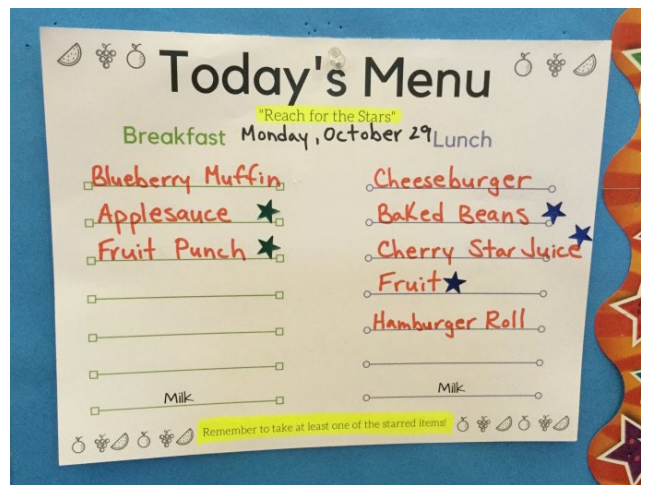 Today's Menu
"Reach for the Stars"
Breakfast Monday, October 29 Lunch
Blueberry Muffin
Applesauce
Fruit Punch
Milk
Cheeseburger
Baked Beans
Cherry Star Juice
Fruit
Hamburger Roll
Milk
Remember to take at least one of the starred items!